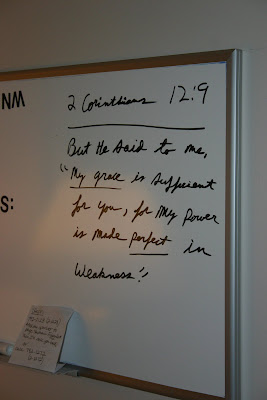 NM
2 Corinthians 12:9
But He said to me,
"My grace is sufficient
for you, for my power
is made perfect in
weakness."
S: